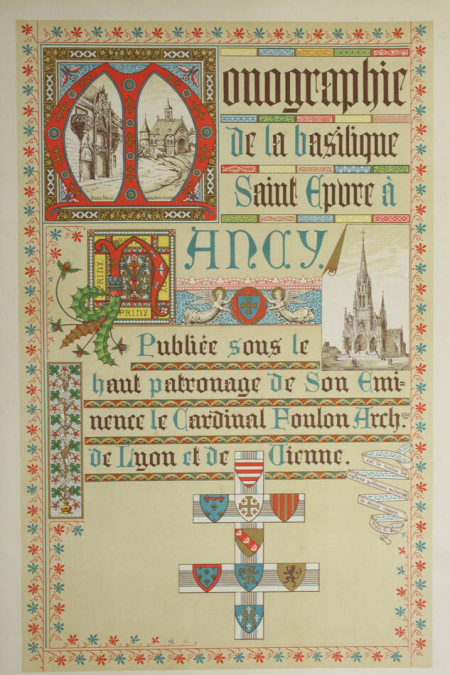 Monographie
de la basilique
Saint Epvre à
NANCY.
Publiée sous le
haut patronage de Son Emi-
nence le Cardinal Foulon Arch.
de Lyon et de Vienne.